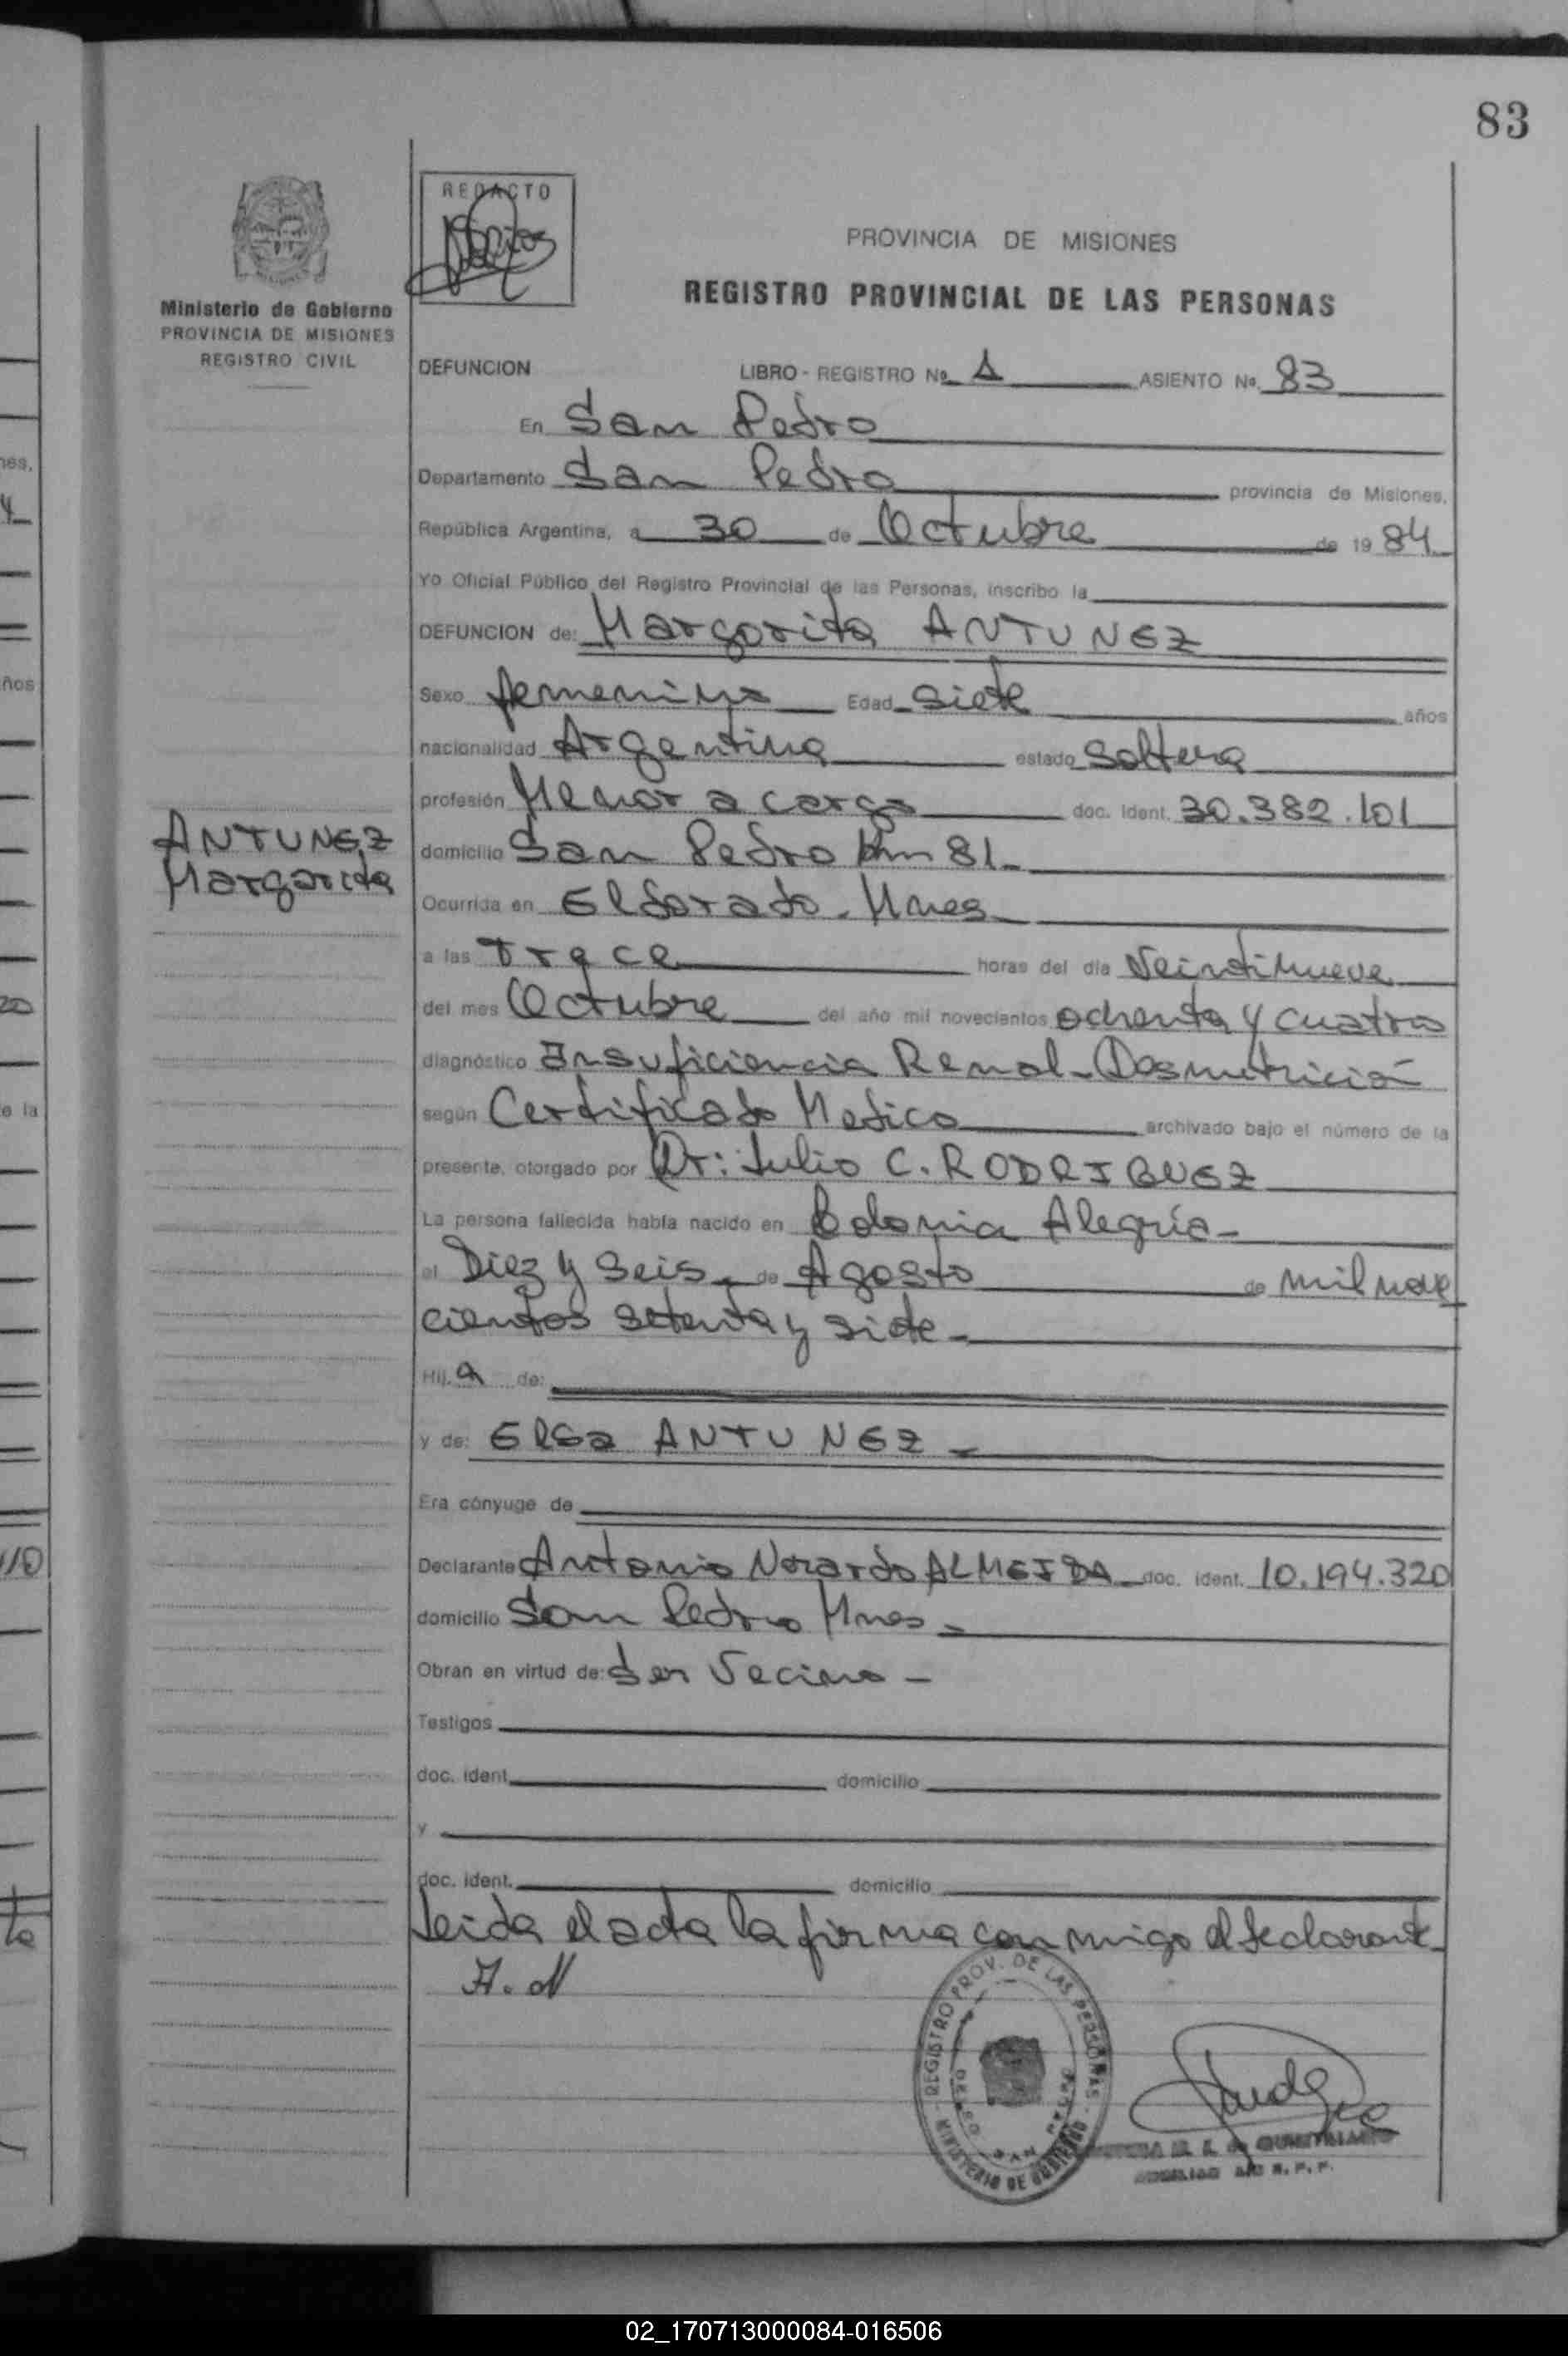 83
REDACTO
Ministerio de Gobierno
PROVINCIA DE MISIONES
REGISTRO CIVIL
PROVINCIA DE MISIONES
REGISTRO PROVINCIAL DE LAS PERSONAS
DEFUNCION LIBRO - REGISTRO Nº ASIENTO Nº. 83
En San Pedro
Departamento San Pedro provincia de Misiones,
República Argentina, a 30 de Octubre de 19 84
Yo Oficial Público del Registro Provincial de las Personas, inscribo la
DEFUNCION de: Margarita ANTUNEZ
Sexo femenino Edad siete años
nacionalidad Argentina estado soltera
profesión Menor a cargo doc. ident. 30.382.101
ANTUNEZ
Margarita
domicilio San Pedro km 81
Ocurrida en Eldorado - Mnes
a las trece horas del día Veintinueve
del mes Octubre del año mil novecientos ochenta y cuatro
diagnóstico Insuficiencia Renal - Desnutrición
según Certificado Medico archivado bajo el número de la
presente, otorgado por Dr: Julio C. RODRIGUEZ
La persona fallecida había nacido en Colonia Alegría -
el Diez y seis de Agosto de mil nove
cientos setenta y siete -
Hij a de:
y de: Elsa ANTUNEZ -
Era cónyuge de
Declarante Antonio ALMEIDA doc. ident. 10.194.320
domicilio San Pedro Mnes -
Obran en virtud de: Ser Vecino -
Testigos
doc. ident. domicilio
y
doc. ident. domicilio
Leida el acta la firma conmigo el declarante
REGISTRO PROV. DE LAS PERSONAS - MINISTERIO DE GOBIERNO
02_170713000084-016506